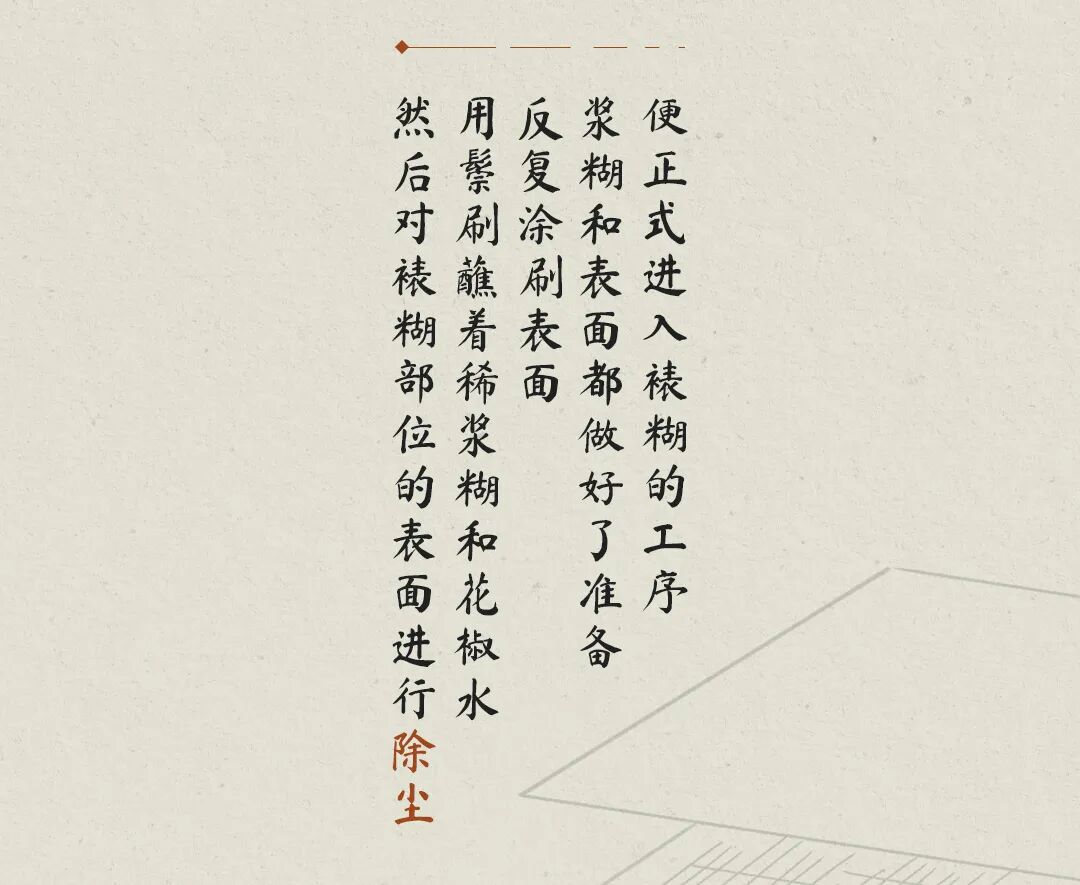 然后对裱糊部位的表面进行除尘
用鬃刷蘸着稀浆糊和花椒水
反复涂刷表面
浆糊和表面都做好了准备
便正式进入裱糊的工序